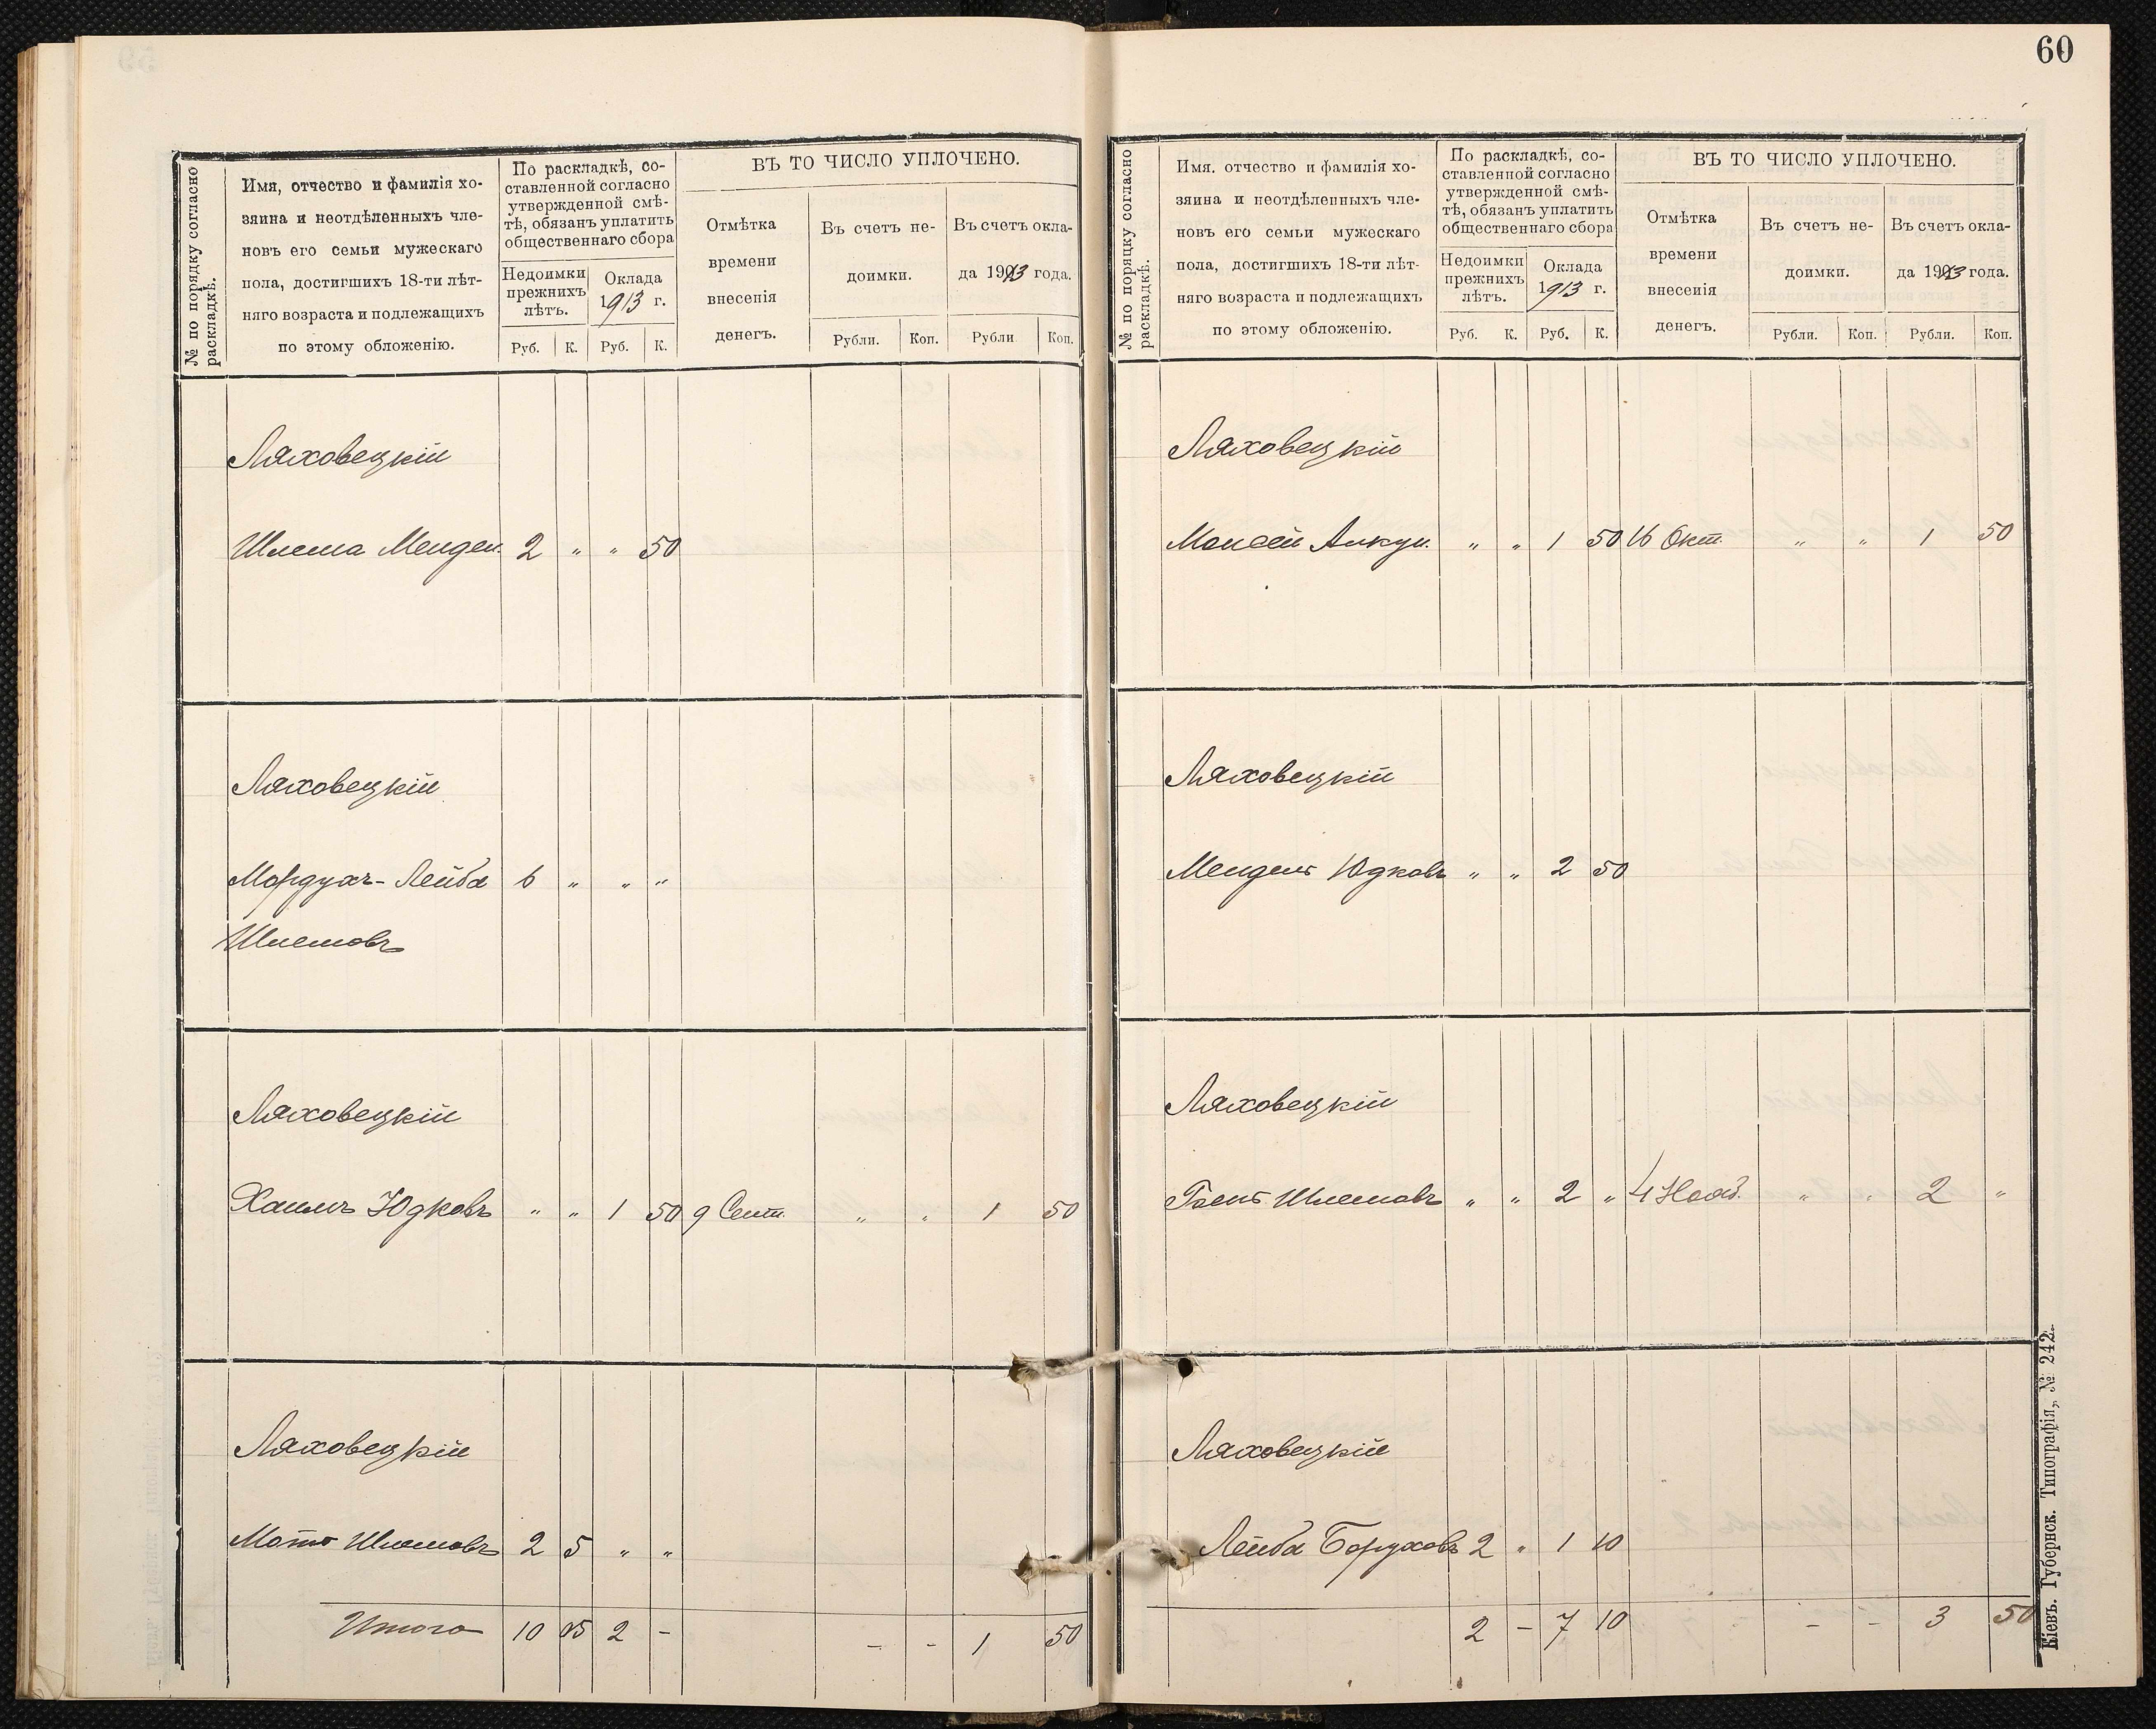 60
№ по порядку согласно раскладкѣ.
Имя, отчество и фамилія хо-
зяина и неотдѣленныхъ чле-
новъ его семьи мужескаго
пола, достигшихъ 18-ти лѣт-
няго возраста и подлежащихъ
по этому обложенію.
По раскладкѣ, со-
ставленной согласно
утвержденной смѣ-
тѣ, обязанъ уплатить
общественнаго сбора
Недоимки
прежнихъ
лѣтъ.
Оклада
1913 г.
Руб. К. Руб. К.
ВЪ ТО ЧИСЛО УПЛОЧЕНО.
Отмѣтка
времени
внесенія
денегъ.
Въ счетъ не-
доимки.
Въ счетъ окла-
да 1913 года.
Рубли. Коп. Рубли Коп.
Ляховецкій
Шлема Мендел. 2 " " 50
Ляховецкій
Мордухъ-Лейба 6 " " "
Шлемовъ
Ляховецкій
Хаимъ Юдковъ " " 1 50 9 Сент. " " 1 50
Ляховецкій
Мотя Шлемовъ 2 5 " "
Итого 10 05 2 - - - 1 50
№ по поряцку согласно раскладкѣ.
Имя. отчество и фамилія хо-
зяина и неотдѣленныхъ чле-
новъ его семьи мужескаго
пола, достигшихъ 18-ти лѣт-
няго возраста и подлежащихъ
по этому обложенію.
По раскладкѣ, со-
ставленной согласно
утвержденной смѣ-
тѣ, обязанъ уплатить
общественнаго сбора
Недоимки
прежнихъ
лѣтъ.
Оклада
1913 г.
Руб. К. Руб. К.
ВЪ ТО ЧИСЛО УПЛОЧЕНО.
Отмѣтка
времени
внесенія
денегъ.
Въ счетъ не-
доимки.
Въ счетъ окла-
да 1913 года.
Рубли. Коп. Рубли. Коп.
Ляховецкій
Моисей " " 1 50 16 Окт. " " 1 50
Ляховецкій
Мендель Юдковъ " " 2 50
Ляховецкій
Шлемовъ " " 2 " 4 " " 2 "
Ляховецкій
Лейба Боруховъ 2 " 1 10
2 - 7 10 - - 3 50
Кіевъ. Губернск. Типографія, № 242.